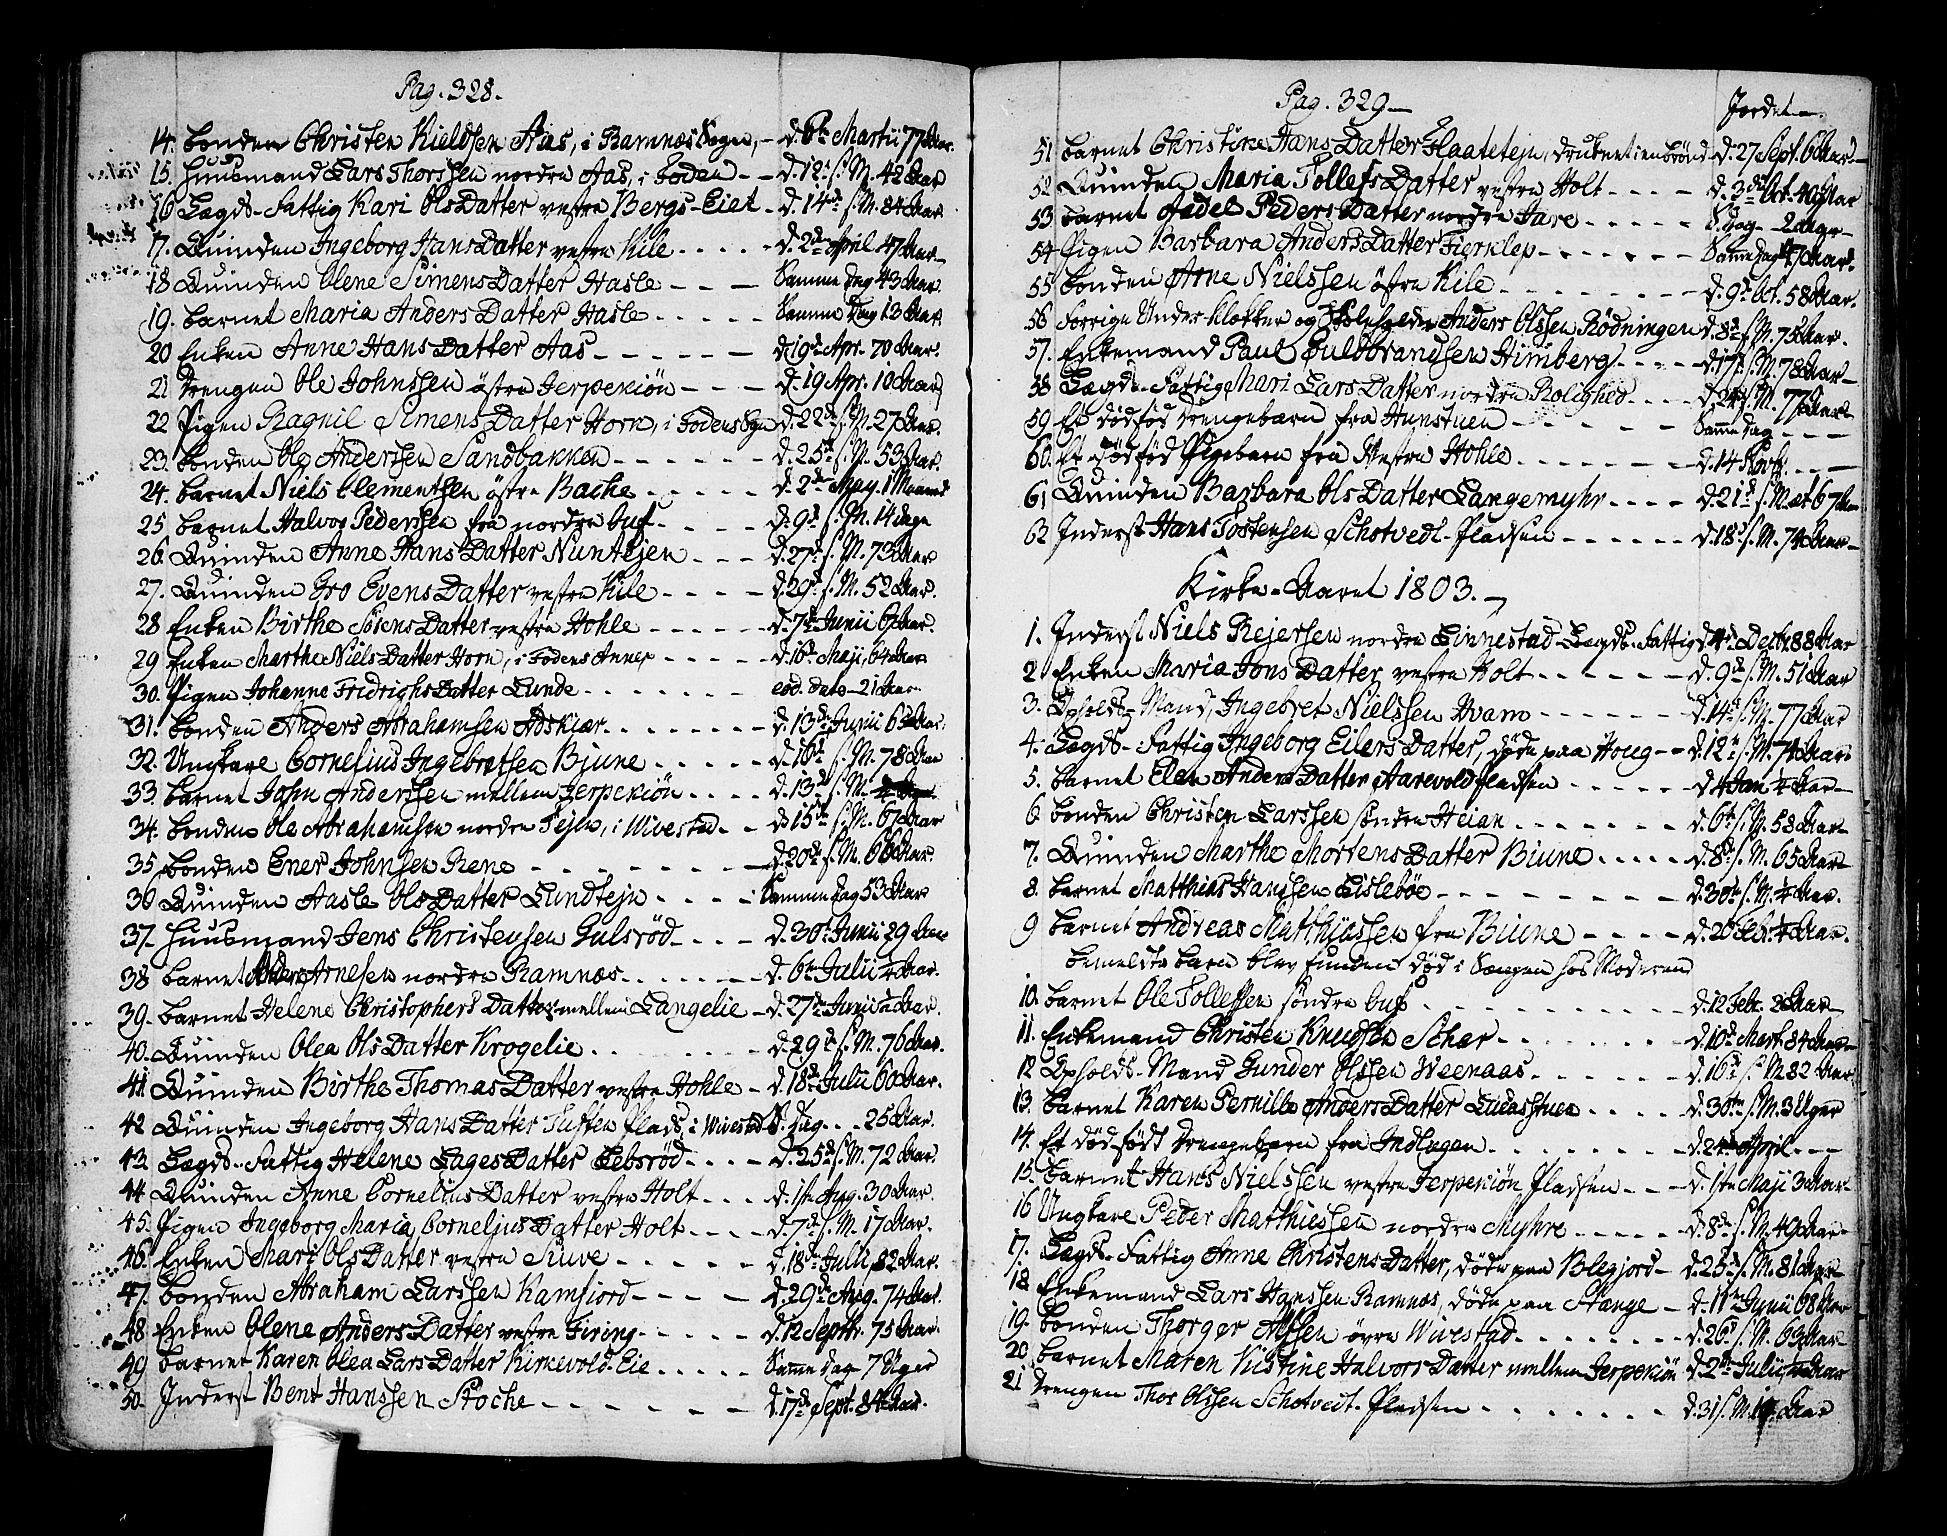 Pag. 328.
14. Bonden Christen Kieldsen Aas, i Ramnæs Sogn, - d. 6te Martii 77 Aar.
15. Huusmand Lars Thorssen nordre Aas, i Foden - - d. 12. s. M. 42 Aar
16 Lægds-Fattig Kari Ols Datter vestre Bergs-Eiet - d. 14de s. M. 84 Aar
17. Quinden Ingeborg Hans Datter vestre Kile - - - - d. 2de April 47 Aar
18 Quinden Olene Simens Datter Hasle - - - Samme Dag 43 Aar
19. Barnet Maria Anders Datter Hasle - - - - - Samme Dag 13 Aar
20 Enken Anne Hans Datter Aas - - - - - - d. 19de Apr. 70 Aar.
21 Drengen Ole Johnssen østre Jerpekiøn - - - - d. 19 Apr. 10 Aar
22 Pigen Ragnil Simens Datter Horn, i Fodens Sogn d. 22de s. M. 27 Aar.
23. Bonden Ole Anderssen Sandbakken - - - - - - d. 25de s. M. 53 Aar.
24. Barnet Niels Clementsen østre Bache - - - - - d. 2de May. 1 Maaned
25 Barnet Halvor Pederssen fra nordre Buf - - - - d. 9de s. M. 14 dage
26. Quinden Anne Hans Datter Nuntejen - - - d. 27de s. M. 73 Aar
27. Quinden Gro Evens Datter vestre Kile - - - - d. 29de s. M. 52 Aar.
28 Enken Birthe Sørens Datter vestre Hohle - - - - - d. 7de Junii Aar.
29 Enken Marthe Niels Datter Horn, i Fodens Annex - - - - d. 16de Maji, 64 Aar
30. Pigen Johanne Fridrighs Datter Lunde - - - - - - - eod. dato - 21 Aar.
31. Bonden Anders Abrahamsen Adskiær - - - - - - d. 13de Junii 63 Aar.
32. Ungkare Cornelius Ingebretsen Bjune - - - - - d. 16de s. M. 78 Aar
33. Barnet John Anderssen mellem Jerpekiøn - - - - d. 13de s. M.
34. Bonden Ole Abrahamsen nordre Tejen, i Wivestad - - d. 15de s. M. 67 Aar
35 Bonden Ener Johnsen Rene - - - - - - - - d. 20de s. M. 66 Aar.
36 Quinden Aasle Ols Datter Lundtejn - - - - Samme Dag 53 Aar
37. Huusmand Jens Christensen Gulsrød - - - - d. 30te Junii 29 Aar
38 Barnet Arnesen nordre Ramnæs - - - - - - d. 6te Julii Aar.
39. Barnet Helene Christophers Datter mellem Langelie - d. 27de Junii Aar.
40. Quinden Olea Ols Datter Krogelie - - - - - - - d. 29de s. M. 76 Aar.
41. Quinden Birthe Thomas Datter vestre Hohle - d. 18de Julii 60 Aar.
42 Quinden Ingeborg Hans Datter Tuften Plads, i Wivestad S. Dag - - - 25 Aar.
43. Lægds-Fattig Helene Lages Datter Lebsrød - - - - d. 25de s. M. 72 Aar.
44. Quinden Anne Cornelius Datter vestre Holt - - - d. 1ste Aug. 30 Aar.
45. Pigen Ingeborg Maria Cornelius Datter Holt - - - - d. 7de s. M. 17 Aar.
46. Enken Mari Ols Datter vestre Suve - - - - - d. 18de Julii, 82 Aar.
47. Bonden Abraham Larssen Kamfiord - - - - d. 29de Aug. 74 Aar.
48. Enken Olene Anders Datter vestre Firing - - - - - d. 12 Septbr. 75 Aar.
49 Barnet Karen Olea Lars Datter Kirkevold-Eie - - - - Samme Dag 7 Uger
50. Inderst Bent Hanssen Stoche - - - - - - d. 17de Sept. 84 Aar.
Pag. 329 -
Jordet -
51 Barnet Christine Hans Datter Flaatetejn, druknet i en brønd d. 27 Sept. 6 Aar.
52 Quinden Maria Tollefs Datter vestre Holt - - - - d. 3de Oct. 40 Aar
53 Barnet Aadel Peders Datter nordre Fare - - - - - S. Dag - 2 Aar -
54 Pigen Barbara Anders Datter Fierklep - - - - - - Samme Dag 47 Aar.
55 Bonden Arne Nielssen østre Kile - - - - - - - - d. 9de Oct. 58 Aar.
56 Forrige Under-Klokker og Skoleholder Anders Olssen Rødningen d. 8de s. M. 75 Aar.
57. Enkemand Paul Gulbrandsen Himberg - - - - d. 17de s. M. 78 Aar
58 Lægds-Fattige Mari Lars Datter nordre Rolighed - - - - d. 24de s. M. 77 Aar
59 Et dødfød Drengebarn fra Hunstuen - - - - - - Samme Dag - - -
60. Et dødfød Pigebarn fra Westre Hohle - - - - - - - d. 14 Novbr. - - -
61 Quinden Barbara Ols Datter Langemyhr - - - - d. 21de s. M. æt 67 Aar
62 Inderst Hans Tostensen Schotvedt-Pladsen - - - - - - d. 18de s. M. 74 Aar -
Kirke-Aaret 1803. -
1. Inderst Niels Rejersen nordre Linnestad Lægds-Fattig d. 4de Decbr. 88 Aar
2 Enken Maria Jons Datter vestre Holt - - - - - - d. 9de s. M. 51 Aar
3. Opholds-Mand, Ingebret Nielssen Hvam - - - - - - d. 14de s. M. 77 Aar
4. Lægds-Fattig Ingeborg Eilers Datter, døde paa Houg - - d. 12te s. M. 74 Aar
5. Barnet Elen Anders Datter Aarevold Pladsen - - - - - d. 4 Jan. ¼ Aar -
6. Bonden Christen Larssen søndre Heian - - - - - - - d. 6te s. M. 58 Aar
7. Quinden Marthe Mortens Datter Biune - - - - - d. 8de s. M. 65 Aar
8. Barnet Matthias Hanssen Lislebøe - - - - - - - - d. 30te s. M. ¼ Aar.
9 Barnet Andreas Matthiassen fra Biune - - - - d. 20 Febr. ¼ Aar.
Bemeldte Barn blev funden død i Sængen hos Moderen
10. Barnet Ole Tollefsen søndre Buf - - - - - - - - d. 12 Febr. 2 Aar
11. Enkemand Christen Knudsen Schar - - - - - - - d. 10de Mart. 84 Aar
12 Opholds-Mand Gunder Olssen Weenaas - - - - - - d. 16de s. M 82 Aar.
13. Barnet Karen Pernille Anders Datter Lucasstuen - - - - d. 30te s. M. 3 Uger
14. Et dødfødt Drengebarn fra Indlagen - - - - - - - - d. 24de April - - -
15. Barnet Hans Nielssen vestre Jerpekiøn Pladsen - - - d. 1ste Maji 3 Aar
16 Ungkare Peder Matthiessen nordre Myhre - - - - - d. 8de s. M. 40 Aar
17. Lægds-Fattig Anne Christens Datter, døde paa Blegjord - d. 25de s. M. 81 Aar
18 Enkemand Lars Hanssen Ramnæs, døde paa Stange - d. 11te Junii 68 Aar
19. Bonden Thorger Alfsen øvre Wivestad - - - - - - - d. 26de s. M. 63 Aar
20. Barnet Maren Kistine Halvors Datter mellem Jerpekiøn d. 2de Julii, Aar
21 Drengen Thor Olssen Schotvedt-Pladsen - - - - - - - d. 31 s. M. Aar